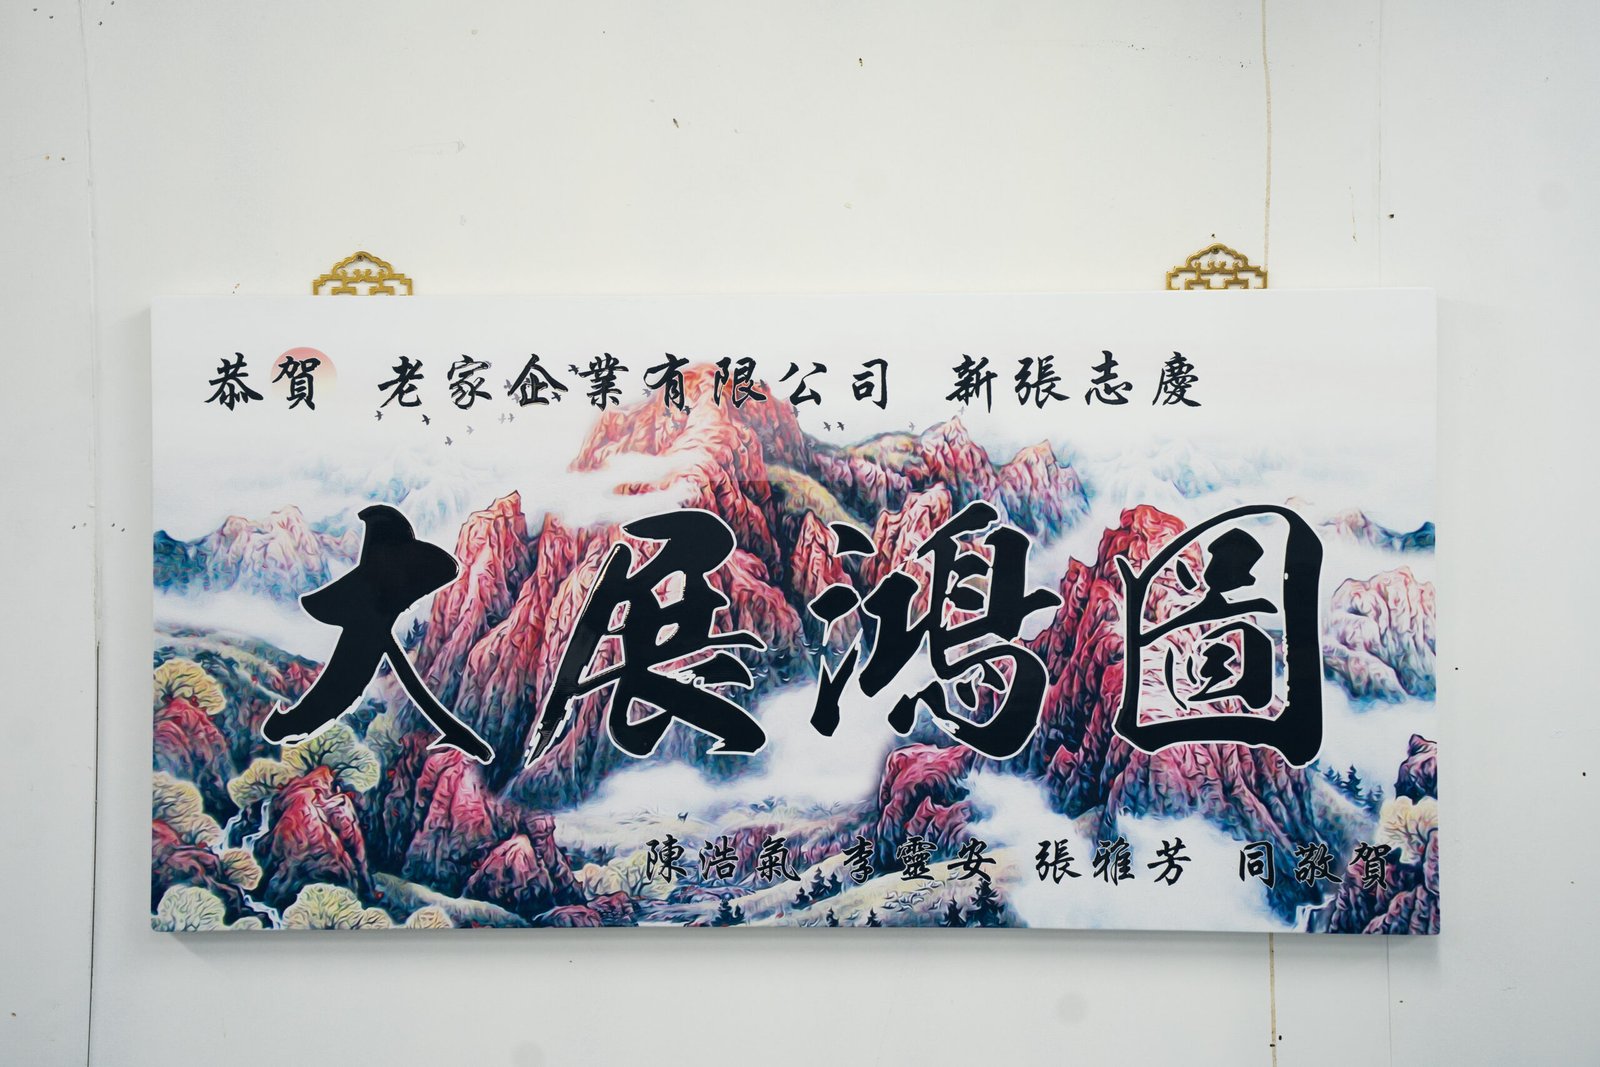 恭賀 老家企業有限公司 新張志慶
大展鴻圖
陳浩氣 李靈安 張雅芳 同敬賀